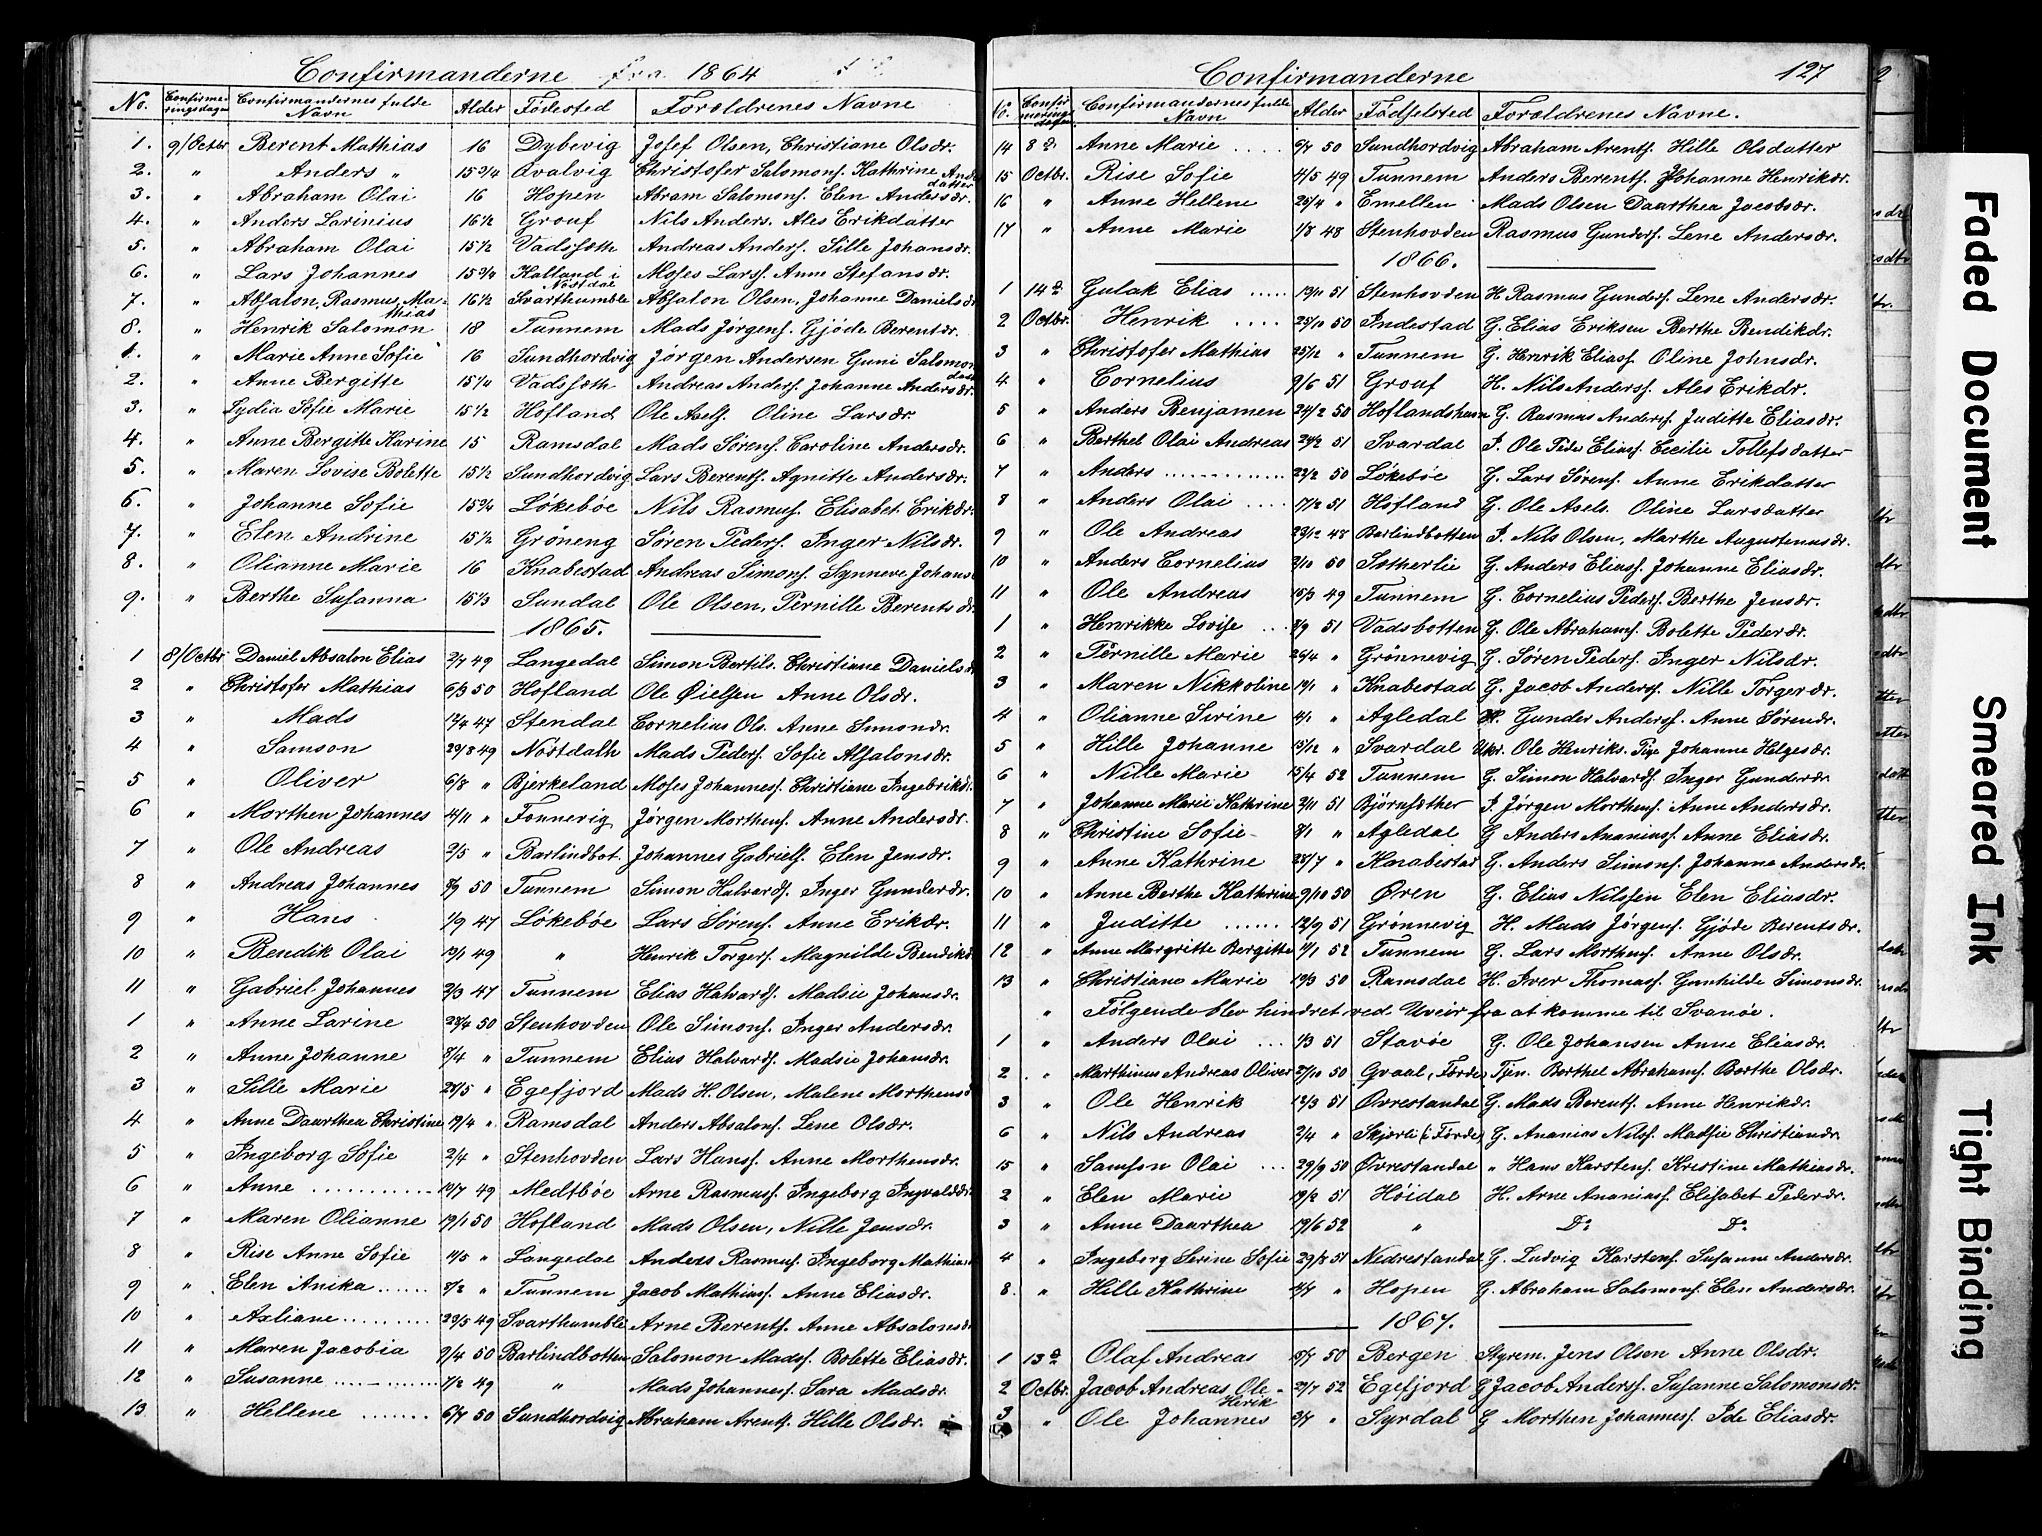 Confirmanderne fra 1864
No. Confirmeringsdagen Confirmandernes fulde Navn Alder Födested Forældrenes Navne
1. 9/Octbr Berent Mathias 16 Dybevig Josef Olsen, Christiane Olsdr.
2. " Anders " 15 3/4 Qvalvig Christofer Salomons. Kathrine Andersdatter
3. " Abraham Olai 16 Hopen Abram Salomons. Elen Andersdr.
4. " Anders Larinius 16 1/2 Grouf Nils Anders. Ales Erikdatter
5. " Abraham Olai 15 1/2 Vadsæth Andreas Anders. Sille Johansdr.
6. " Lars Johannes 15 3/4 Kalland i Nostdal Moses Larss. Anne Stefansdr.
7. " Absalon, Rasmus, Mathias 16 1/2 Svarthumble Absalon Olsen, Johanne Danielsdr
8. " Henrik Salomon 18 Tunnem Mads Jørgens. Gjöde Berentdr.
1. " Marie Anne Sofie 16 Sundhordvig Jörgen Andersen Guni Salomondatr
2. " Anne Bergitte 15 1/4 Vadsæth Andreas Anders. Johanne Andersdr.
3. " Lydia Sofie Marie 15 1/2 Hofland Ole Axels. Oline Larsdr
4. " Anne Bergitte Karine 15 Ramsdal Mads Sørens. Caroline Andersdr.
5. " Maren Lovise Bolette 15 1/2 Sundhordvig Lars Berents. Agnitte Andersdr.
6. " Johanne Sofie 15 3/4 Lökebøe Nils Rasmus. Elisabet Erikdr.
7. " Elen Andrine 15 1/2 Gröneng Søren Peders. Inger Nilsdr.
8. " Olianne Marie 16 Knabestad Andreas Simons. Synneve Johans
9. " Berthe Susanna 15 1/3 Sundal Ole Olsen, Pernille Berentsdr
1865.
1 8/Octbr Daniel Absalon Elias 2/7 49 Langedal Simon Bertils. Christiane Danielsdr
2 " Christofer Mathias 6/3 50 Hofland Ole Øielsen Anne Olsdr.
3 " Mads 17/4 47 Stendal Cornelius Ols. Anne Simondr.
4 " Samson 29/8 49 Nordalh Mads Peders. Sofie Absalonsdr.
5 " Oliver 6/8 " Bjerkeland Moses Johanness. Christiane Ingebrikdr.
6 " Morthen Johannes 4/11 " Fonnevig Jørgen Morthens. Anne Andersdr.
7 " Ole Andreas 2/5 " Barlindbot. Johannes Gabriels. Elen Jensdr.
8 " Andreas Johannes 8/9 50 Tunnem Simon Halvards. Inger Gunderdr.
9 " Hans 1/9 47 Lökebøe Lars Sørens. Anne Erikdr.
10 " Bendik Olai 13/1 49 " Henrik Torgers. Magnilde Bendikd.
11 " Gabriel Johannes 2/3 47 Tunnem Elias Halvards. Madsie Johansdr.
1 " Anne Larine 23/4 50 Stenhovden Ole Simons. Inger Andersdr.
2 " Anne Johanne 8/4 " Tunnem Elias Halvards. Madsie Johansdr.
3 " Sille Marie 28/5 " Egefjord Mads H. Olsen, Malene Morthensd
4 " Anne Daarthea Christine 19/4 " Ramsdal Anders Absalons. Lene Olsdr.
5 " Ingeborg Sofie 2/4 " Stenhovden Lars Hanss. Anne Morthensdr.
6 " Anne 13/7 49 Medtbøe Arne Rasmuss. Ingeborg Ingvaldsdr.
7 " Maren Olianne 19/1 50 Hofland Mads Olsen, Nille Jensdr.
8 " Rise Anne Sofie 11/5 " Langedal Anders Rasmus. Ingeborg Mathias
9 " Elen Anika 8/2 " Tunnem Jacob Mathiass. Anne Eliasdr.
10 " Axliane 23/5 49 Svarthumble Arne Berents. Anne Absalonsdr
11 " Maren Jacobia 9/4 50 Barlindbotten Salomon Madss. Bolette Eliasdr.
12 " Susanne 1/2 49 " Mads Johanness. Sara Madsdr.
13 " Hellene 6/7 50 Sundhordvig Abraham Arents. Hille Olsdr.
Confirmanderne 127
No. Confirmeringsdagen Confirmandernes fulde Navn Alder Födselsted Forældrenes Navne.
14 8d. Anne Marie 6/7 50 Sundhordvig Abraham Arents. Hille Olsdatter
15 Octbr. Rise Sofie 4/5 49 Tunnem Anders Berents. Johanne Henrikdr.
16 " Anne Hellene 25/4 " Emellen Mads Olsen Daarthea Jacobsdr.
17 " Anne Marie 1/8 48 Stenhovden Rasmus Gunders. Lene Andersdr.
1866.
1 14de Gulak Elias 13/11 51 Stenhovden H. Rasmus Gunders. Lene Andersdr.
2 Octbr. Henrik 25/10 50 Indestad G. Elias Eriksen Berthe Bendikdr.
3 " Christofer Mathias 25/12 " Tunnem G. Henrik Eliass. Oline Johnsdr.
4 " Cornelius 9/6 51 Grouf H. Nils Anderss. Ales Erikdr.
5 " Anders Benjamen 24/2 50 Hoflandsham G. Rasmus Anders. Juditte Eliasdr.
6 " Berthel Olai Andreas 24/2 51 Svardal I. Ole Peder Eliass. Cecilie Tollefsdatter
7 " Anders 22/2 50 Løkebøe G. Lars Sørens. Anne Erikdatter
8 " Anders Olai 17/2 51 Hofland G. Ole Axels. Oline Larsdatter
9 " Ole Andreas 23/12 48 Barlindbotten I. Nils Olsen, Marthe Augustenusdr.
10 " Anders Cornelius 2/10 50 Sætherlie G. Anders Eliass. Johanne Eliasdr.
11 " Ole Andreas 15/3 49 Tunnem G. Cornelius Peders. Berthe Jensdr.
1 " Henrikke Lovise 8/9 51 Vadsbotten G. Ole Abrahams. Bolette Pederdr.
2 " Pernille Marie 26/4 " Grönnevig G. Søren Peders. Inger Nilsdr.
3 " Maren Nikkoline 19/1 " Knabestad G. Jacob Anderss. Nille Torgerdr.
4 " Olianne Sirine 4/1 " Agledal H. Gunder Anderss. Anne Sørendr.
5 " Hille Johanne 15/12 " Svardal Ukr. Ole Henriks. Pige Johanne Helgesdr.
6 " Nille Marie 15/4 52 Tunnem G. Simon Halvards. Inger Gunderdr.
7 " Johanne Marie Kathrine 2/11 51 Björnsæther I. Jørgen Morthens. Anne Andersdr.
8 " Christine Sofie 8/1 " Agledal G. Anders Ananiass. Anne Eliasdr.
9 " Anne Kathrine 28/7 " Knabestad G. Anders Simons. Johanne Andersdr.
10 " Anne Berthe Kathrine 9/10 50 Øren G. Elias Nilssen Elen Eliasdr.
11 " Juditte 12/9 51 Grönnevig H. Mads Jørgens. Gjöde Berentsdr.
12 " Anne Margritte Bergitte 11/1 52 Tunnem G. Lars Morthens. Anne Olsdr.
13 " Christiane Marie 19/3 50 Ramsdal H. Iver Thomass. Gunhilde Simonsdr.
" Fölgende blev hindret ved Uveir fra at komme til Svanöe.
1 " Anders Olai 1/3 51 Stavøe G. Ole Johansen Anne Eliasdr.
2 " Marthinus Andreas Oliver 27/10 50 Gvaal, Förde Tjen. Berthel Abrahams. Berthe Olsdr.
3 " Ole Henrik 12/3 51 Øvrestandal G. Mads Berents. Anne Henrikdr.
6 " Nils Andreas 2/4 " Skjorli (i Förde) G. Ananias Nilss. Madsie Christiandr.
15 " Samson Olai 29/9 50 Øvrestandal " Hans Karstens. Kristine Mathiasdr.
2 " Elen Marie 19/2 51 Höidal H. Arne Ananiass. Elisabet Pederdr.
3 " Anne Daarthea 19/6 52 " Do Do
4 " Ingeborg Serine Sofie 29/8 51 Nedrestandal G. Ludvig Karstens. Susanne Andersdr.
8. " Hille Kathrine 4/7 " Hopen G. Abraham Salomons. Elen Andersdr.
1867.
1 13de Olaf Andreas 18/7 50 Bergen Styrem. Jens Olsen Anne Olsdr.
2 Octbr. Jacob Andreas Ole Henrik 29/7 52 Egefjord G. Jacob Anderss. Susanne Salomonsdr.
3 " Ole Johannes 3/7 " Syrdal G. Morthen Johanness. Ide Eliasdr.
Faded Document
Smeared Ink
Tight Binding